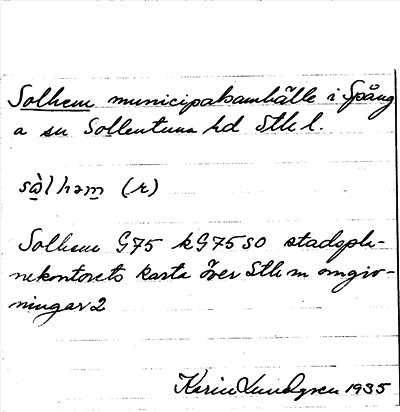 Solhem municipalsamhälle i Spång
a sn Sollentuna hd Sthl l.
sòlhəm (r)
Solhem G75 kG75SO stadspla-
nekontorets karta över Sthlm omgiv-
ningar 2
Karin Lundgren 1935